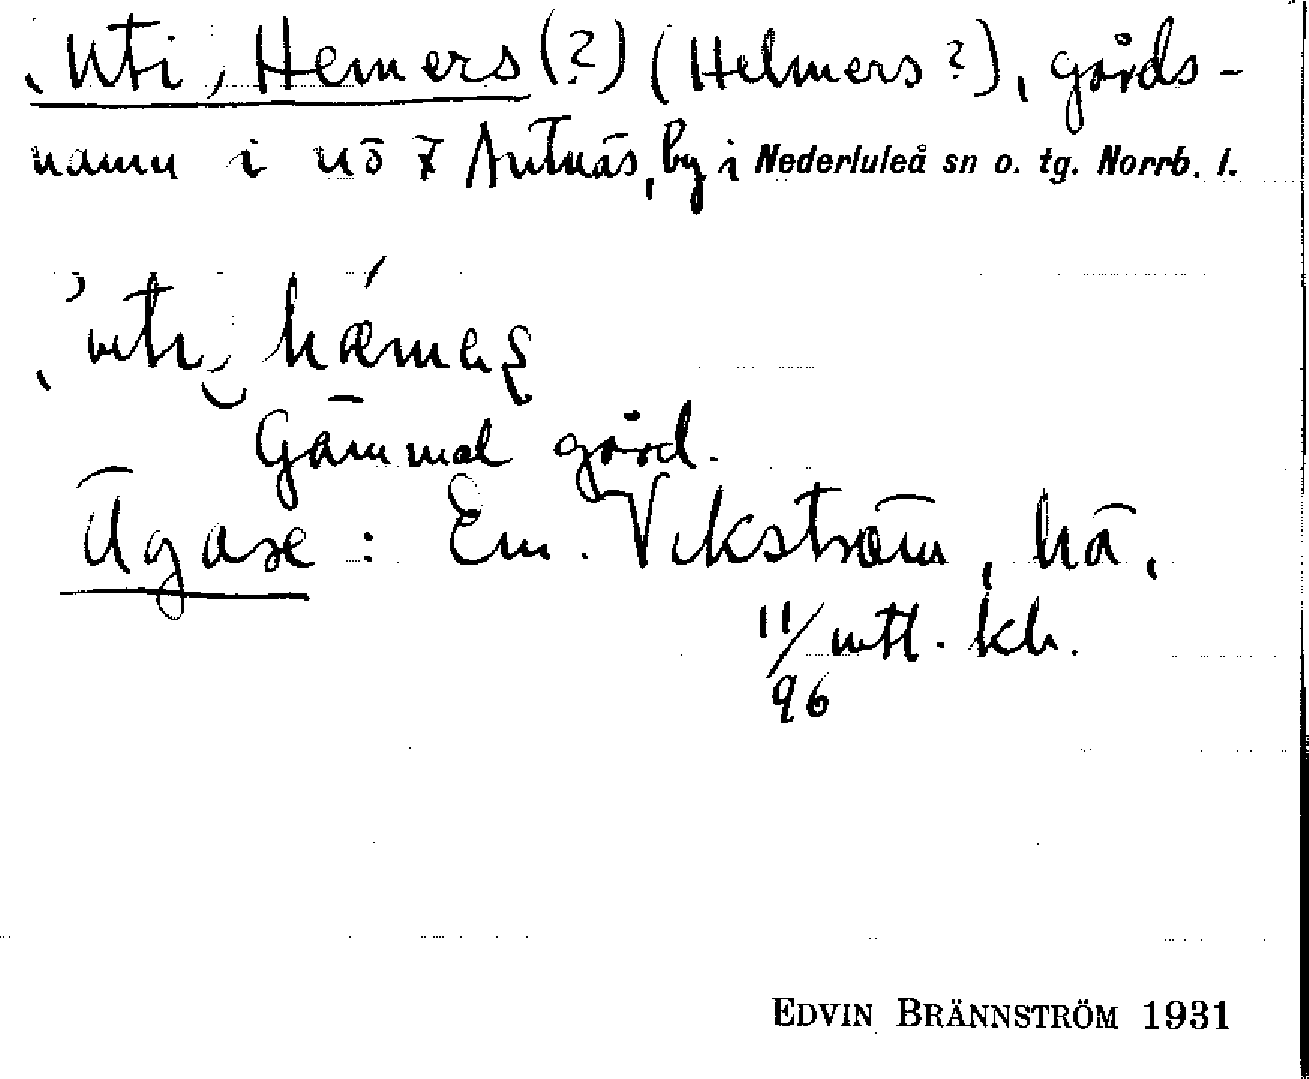 ˌUti ˌHemers (?) (Helmers ?), gårds-
namn i nō 7 Antnäs, by i Nederluleå sn o. tg. Norrb. l.
Gammal gård.
Ägare: Em. Vikström, hä,
11/96 mtl. kh.
EDVIN BRÄNNSTRÖM 1931